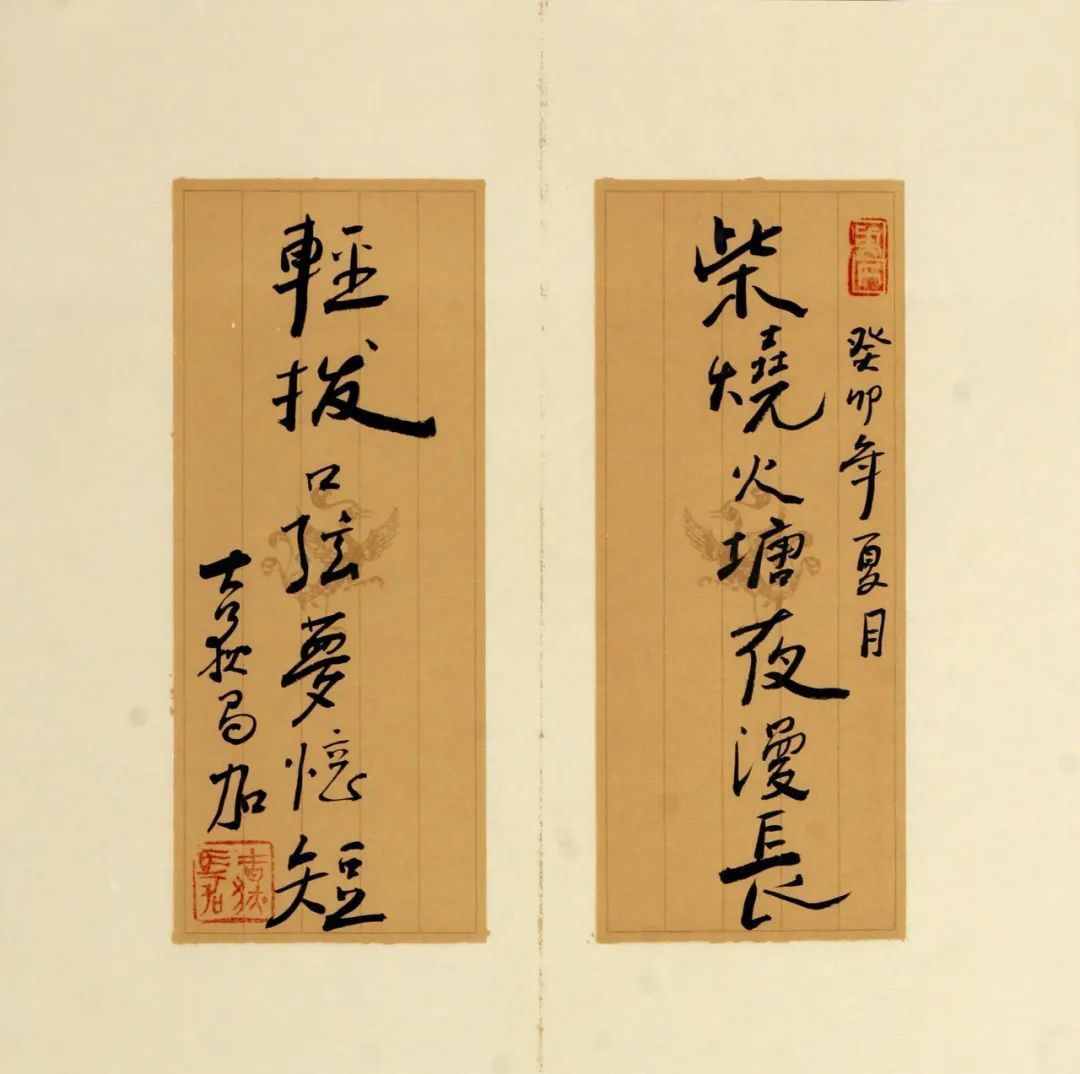 癸卯年夏月
柴燒火塘夜漫長
輕拨口弦夢憶短
吉狄马加